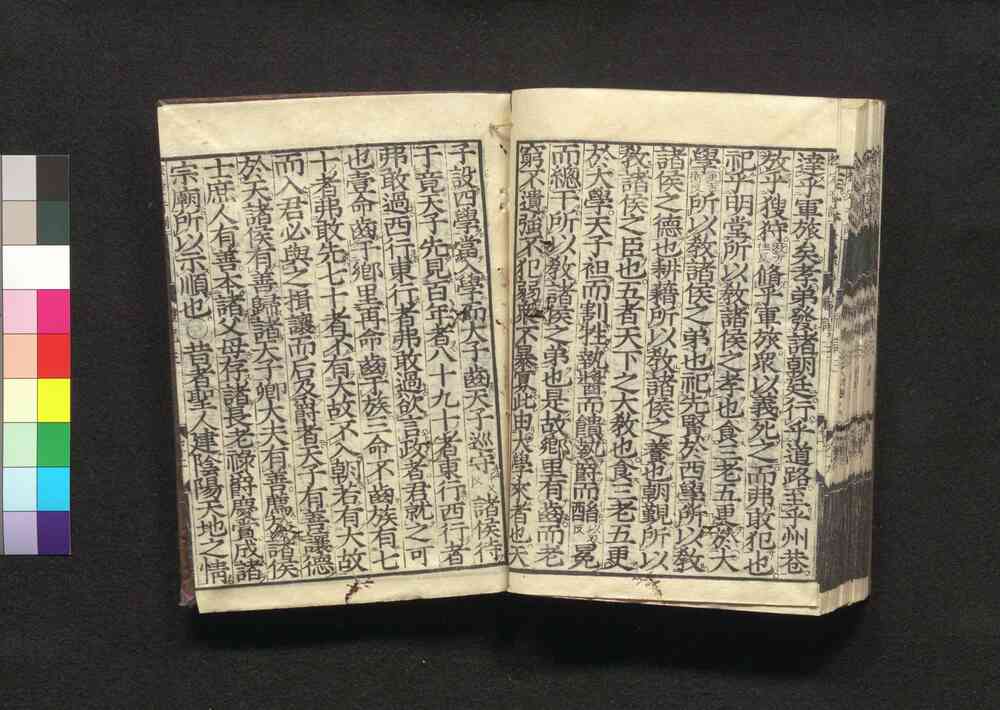 達乎軍旅矣孝弟發諸朝廷行乎道路至乎州巷
放乎獀狩脩乎軍旅衆以義死之而弗敢犯也
祀乎明堂所以教諸侯之孝也食三老五更於大
學所以教諸侯之弟也祀先賢於西學所以教
諸侯之德也耕藉所以教諸侯之養也朝覲所以
教諸侯之臣也五者天下之大教也食三老五更
於大學天子袒而割牲執醬而饋執爵而酳冕
而總干所以教諸侯之弟也是故鄉里有齒而老
窮不遺強不犯弱衆不暴寡此由大學來者也天
子設四學當入學而大子齒天子巡守諸侯待
于竟天子先見百年者八十九十者東行西行者
弗敢過西行東行者弗敢過欲言政者君就之可
也壹命齒于鄉里再命齒于族三命不齒族有七
十者弗敢先七十者不有大故不入朝若有大故
而入君必與之揖讓而后及爵者天子有善讓德
於天諸侯有善歸諸天子卿大夫有善薦於諸侯
士庶人有善本諸父母存諸長老祿爵慶賞成諸
宗廟所以示順也 昔者聖人建陰陽天地之情